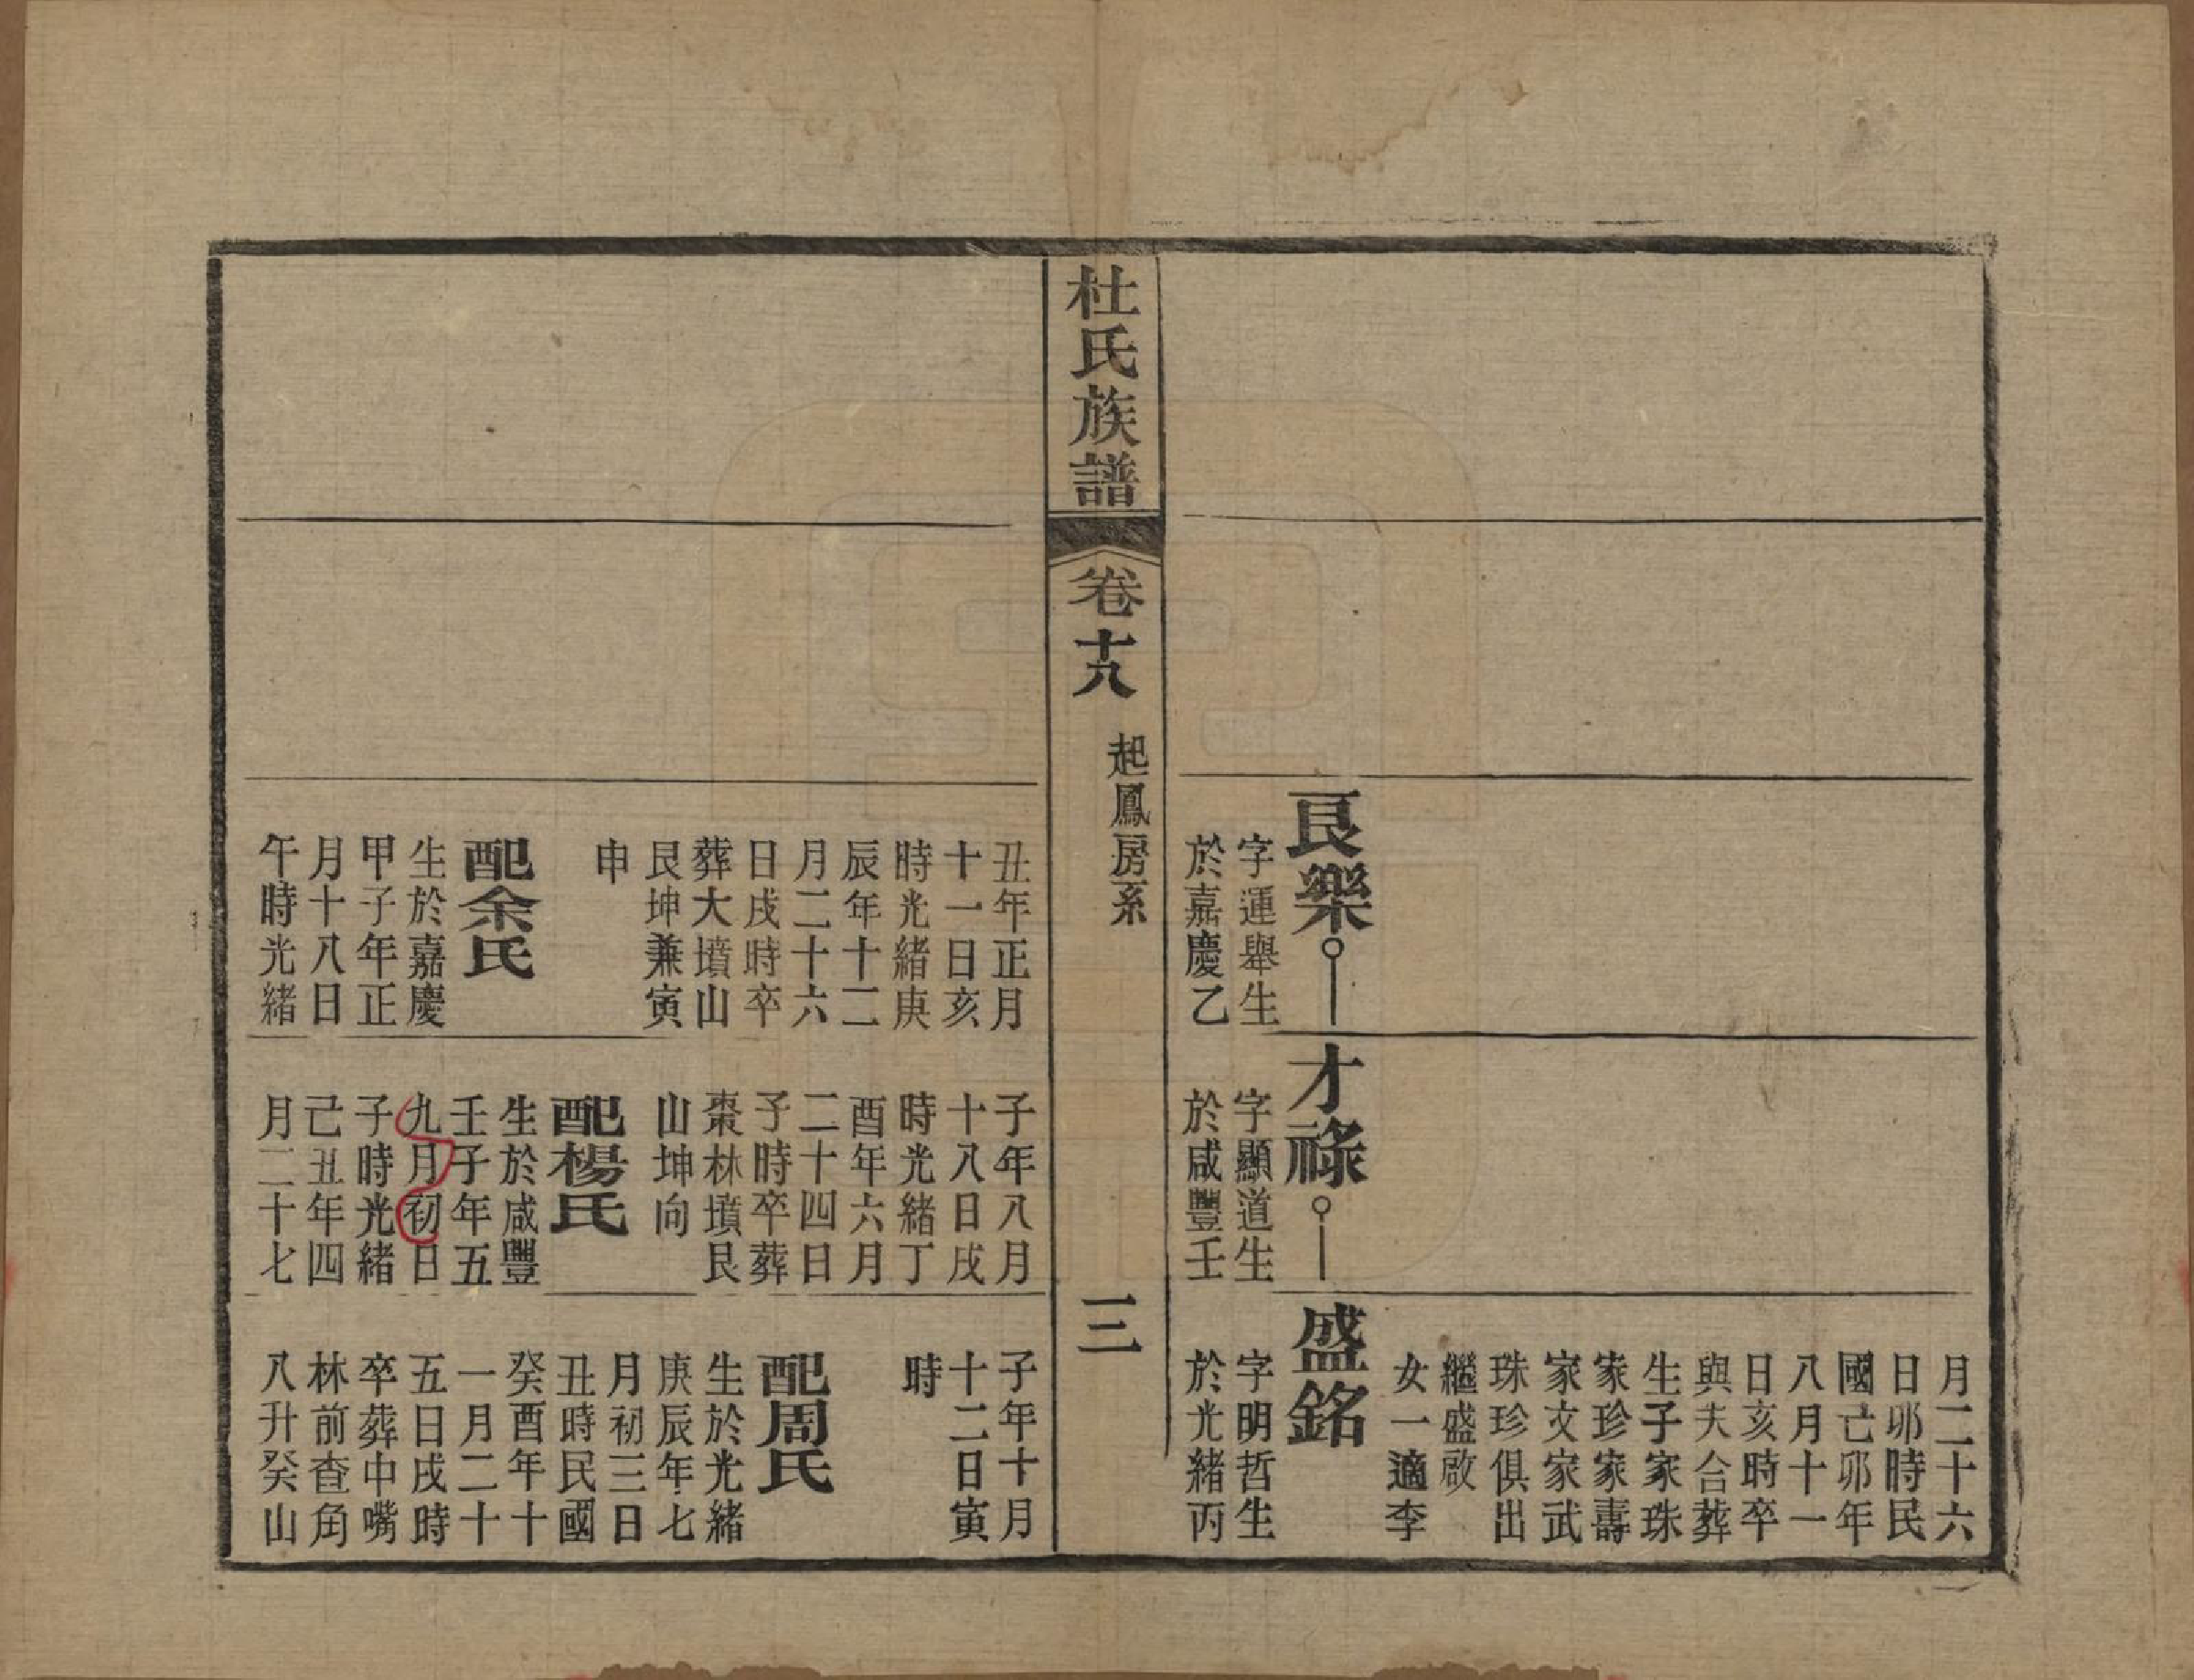 月二十六
日卯時民
國己卯年
八月十一
日亥時卒
與夫合葬
生子家珠
家珍家壽
家文家武
珠珍俱出
繼盛啟
女一適李
良樂
字運舉生
於嘉慶乙
才祿
字顯道生
於咸豐壬
盛銘
字明哲生
於光緒丙
杜氏族譜
卷十八
起鳳房系
三
丑年正月
十一日亥
時光緒庚
辰年十二
月二十六
日戌時卒
葬大墳山
艮坤兼寅
申
配余氏
生於嘉慶
甲子年正
月十八日
午時光緒
子年八月
十八日戌
時光緒丁
酉年六月
二十四日
子時卒葬
棗林墳艮
山坤向
配楊氏
生於咸豐
壬子年五
九月初日
子時光緒
己丑年四
月二十七
子年十月
十二日寅
時
配周氏
生於光緒
庚辰年七
月初三日
丑時民國
癸酉年十
一月二十
五日戌時
卒葬中嘴
林前查角
八升癸山